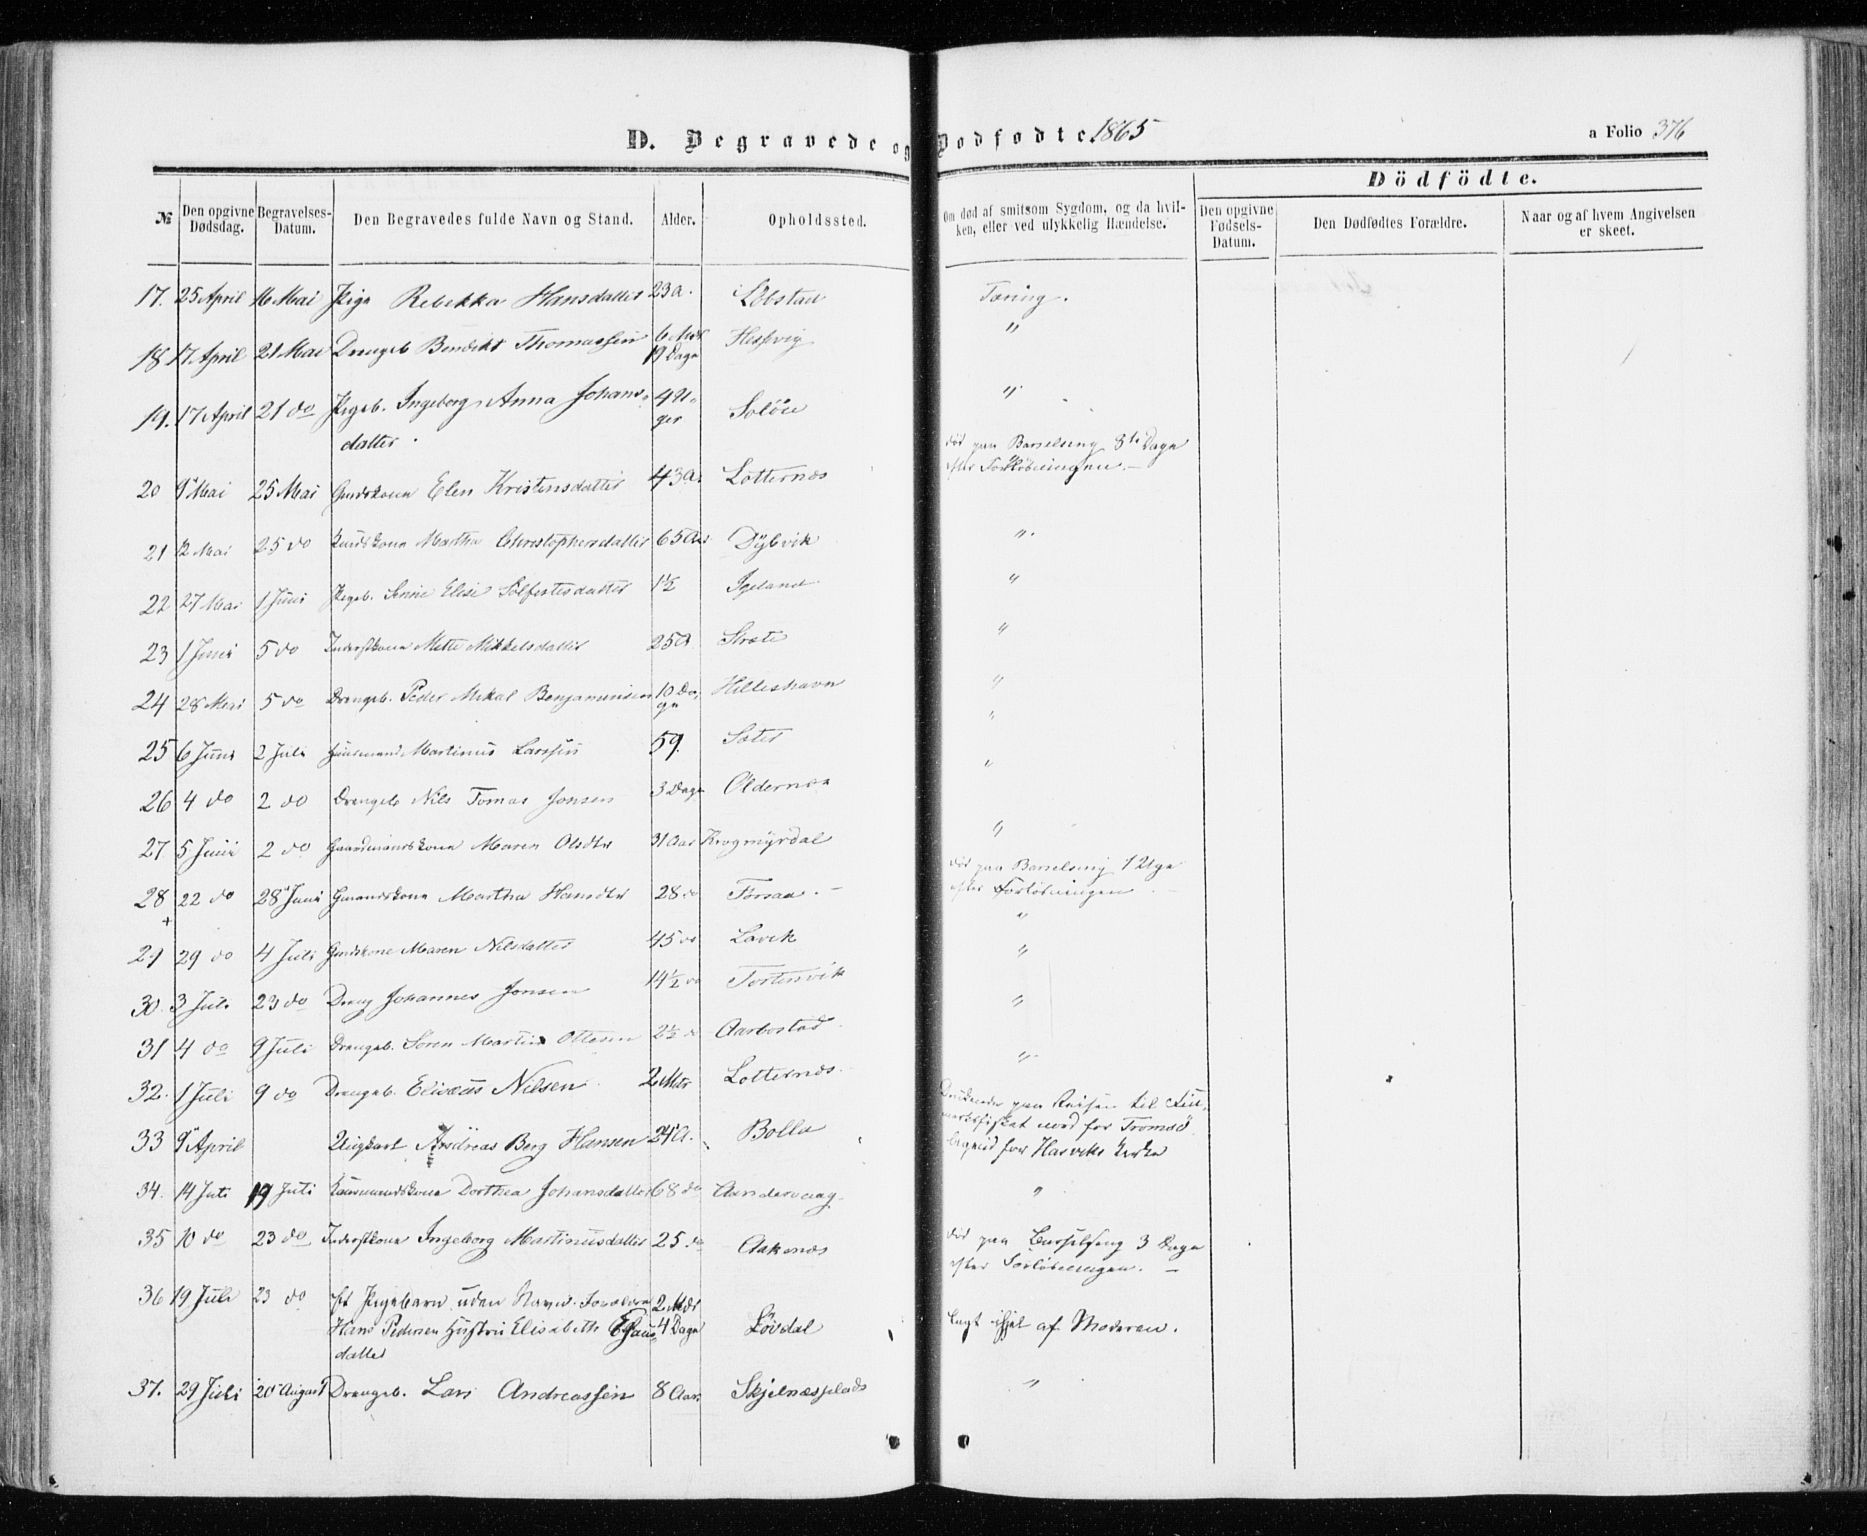 D. Begravede og Dødfødte. 1865
a Folio 376
Dödfödte.
№ Den opgivne Dødsdag. Begravelses-Datum. Den Begravedes fulde Navn og Stand. Alder. Opholdssted. Om død af smitsom Sygdom, og da hvilken, eller ved ulykkelig Hændelse. Den opgivne Fødsels-Datum. Den Dødfødtes Forældre. Naar og af hvem Angivelsen er skeet.
17. 25 April 16 Mai Pige Rebekka Hansdatter 23 a. Løbstad Tæring.
18 17 April 21 Mai Drengeb Bendikt Thomassen 6 Mdr 19 Dage Hessvig "
19. 17 April 21 do Pigeb. Ingeborg Anna Johans-
datter. 4 U-
ger Soløie "
20 9 Mai 25 Mai Elen Kristensdatter 43 a. Lotternæs død paa Barselseng 8te Dage
efter Forløsningen. –
21 12 Mai 25 do Martha Christophersdatter 65 Aar Dybvik "
22 27 Mai 1 Juni Pigeb. Elise 1½ Igeland "
23 1 Juni 5 do Inderstkone Mette Mikkelsdatter 25 a Stræte "
24 28 Mai 5 do Drengeb. Peder Mikal Benjaminsen 10 Da-
ge Hilleshavn "
25 6 Juni 2 Juli Huusmand Martinus Larssen 59. Sæter "
26 4 do 2 do Drengeb Nils Tomas Jonsen 3 Dage Oldernæs "
27 5 Juni 2 do Gaardmandskone Maren Olsdtr 31 Aar Krogmyrdal "
28 22 do 28 Juni Gmandskone Martha Hansdtr 28 do Forsaa. – død paa Barselseng 1 Uge
efter Forløsningen. –
29 29 do 4 Juli Gmdskone Maren Nilsdatter 45 do Lavik "
30. 3 Juli 23 do Dreng Johannes Jonsen 14½ do "
31 4 do 9 Juli Drengeb. Sören Martin Ottesen 2½ do Aarbostad "
32. 1 Juli 9 do Drengeb. Elisæus Nilsen 2 Mdr Lotternæs "
33 9 April Ungkarl Andreas Berg Hansen 24 a. Bolla Druknede paa Reisen til Fin-
markfisket nord for Tromsö
for Hasviks Kirke
34. 14 Juli 19 Juli Dorthea Johansdatter 68 do Aandervaag "
35 10 do 23 do Inderstkone Ingeborg Martinusdatter 25 do Aakenæs død paa Barselseng 3 Dage
efter Forløsningen. –
36 19 Juli 23 do et Pigebarn uden Navn. Forældre 2 Mdr
Hans Pedersen Hustru Elisabeth Claus- 4 Dage Lövdal lagt ihjel af Moderen.
datter
37. 29 Juli 20 August Drengeb. Lars Andreassen 8 Aar. Skjelnæsplads "